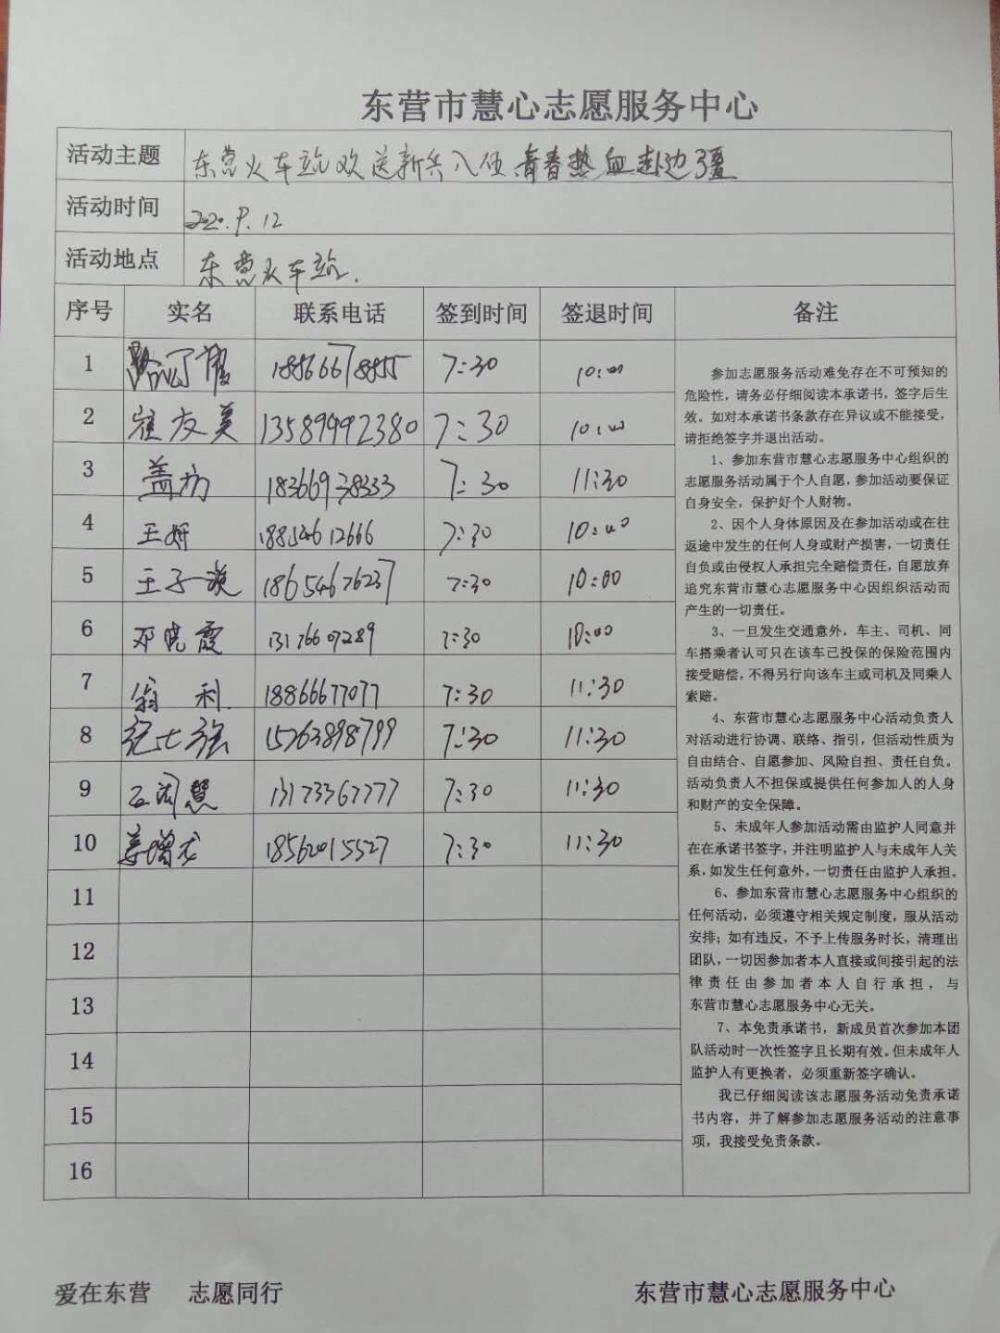 东营市慧心志愿服务中心
活动主题 东营火车站欢送新兵入伍 青春热血赴边疆
活动时间 2020.9.12
活动地点 东营火车站.
序号 实名 联系电话 签到时间 签退时间 备注
1 18566678855 7:30 10:00
2 崔友美 13589992380 7:30 10:00
3 盖 18366938333 7:30 11:30
4 王妍 18854612666 7:30 10:40
5 王子 18654676237 7:30 10:00
6 邓晓霞 13176607289 7:30 10:00
7 翁利 18866677077 7:30 11:30
8 纪七强 15763898799 7:30 11:30
9 石闵慧 13173367777 7:30 11:30
10 姜增龙 18562015527 7:30 11:30
11
12
13
14
15
16
参加志愿服务活动难免存在不可预知的
危险性，请务必仔细阅读本承诺书，签字后生
效。如对本承诺书条款存在异议或不能接受，
请拒绝签字并退出活动。
1、参加东营市慧心志愿服务中心组织的
志愿服务活动属于个人自愿，参加活动要保证
自身安全，保护好个人财物。
2、因个人身体原因及在参加活动或在往
返途中发生的任何人身或财产损害，一切责任
自负或由侵权人承担完全赔偿责任，自愿放弃
追究东营市慧心志愿服务中心因组织活动而
产生的一切责任。
3、一旦发生交通意外，车主、司机、同
车搭乘者认可只在该车已投保的保险范围内
接受赔偿，不得另行向该车主或司机及同乘人
索赔。
4、东营市慧心志愿服务中心活动负责人
对活动进行协调、联络、指引，但活动性质为
自由结合、自愿参加、风险自担、责任自负。
活动负责人不担保或提供任何参加人的人身
和财产的安全保障。
5、未成年人参加活动需由监护人同意并
在在承诺书签字，并注明监护人与未成年人关
系，如发生任何意外，一切责任由监护人承担。
6、参加东营市慧心志愿服务中心组织的
任何活动，必须遵守相关规定制度，服从活动
安排；如有违反，不予上传服务时长，清理出
团队，一切因参加者本人直接或间接引起的法
律责任由参加者本人自行承担，与
东营市慧心志愿服务中心无关。
7、本免责承诺书，新成员首次参加本团
队活动时一次性签字且长期有效。但未成年人
监护人有更换者，必须重新签字确认。
我已仔细阅读该志愿服务活动免责承诺
书内容，并了解参加志愿服务活动的注意事
项，我接受免责条款。
爱在东营 志愿同行 东营市慧心志愿服务中心